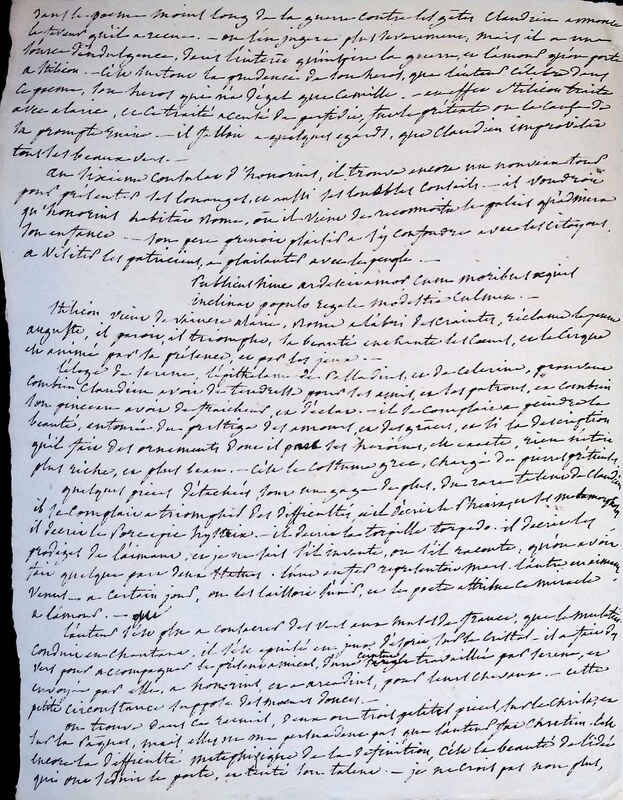 dans le poeme moins long de la guerre contre les gètes Claudien annonce
la faveur qu'il a recue. - on l'en jugera plus sévèrement, mais il a une
source d'indulgence, dans l'interêt qu'inspire la guerre, et l'amour qu'on porte
a Stilicon. - C'est surtout la prudence de son heros, que l'auteur célèbre dans
ce poeme, son heros qui n'a d'égal que Camille. - en effet Stilicon traite
avec alaric, et ce traité accusé de perfidie, fut le prétexte ou la cause de
sa prompte ruine - il falloit a quelques egards, que Claudien
tous les beaux vers. -
au sixieme consulat d'honorius, il trouve encore un nouveau tour
pour présenter ses louanges, et aussi ses nobles conseils. - il voudroit
qu'honorius habitât Rome, où il vient de reconnoitre le palais qu'admira
son enfance - son pere prenoit plaisir a s'y confondre avec les citoyens,
a visiter les patriciens, a plaisanter avec le peuple. -
Publicus hinc ardescit amor cum moribus aequis
inclinat populo regale modestia culmen. -
Stilicon vient de vaincre alaric, Rome a labri des craintes, réclame le jeune
auguste, il paroit, il triomphe, sa beauté enchante les coeurs, et le Cirque
est animé par sa présence, et par les jeux. -
L'éloge de serene, l'épithalame de Palladius, et de Celerine, prouvent
combien Claudien avoit de tendresse pour ses amis, et ses patrons, et combien
son pinceau avoit de fraicheur, et d'éclat. - il se complait a peindre la
beauté, entourée du prestige des amours, et des grâces, et si la description
qu'il fait des ornements dont il pare ses heroines, est exacte, rien n'etoit
plus riche, et plus beau. - C'est le costume grec, chargé de pierres prétieuses.
quelques pieces détachées sont un gage de plus, du rare talent de Claudien
il se complait a triompher des difficultés, et il décrit le Phénix, et ses metamorphoses
il décrit le Porc epic hystrix. - il décrit la torpille torpedo. il décrit les
prodiges de laimant, et je ne sais s'il invente, ou s'il raconte, qu'on avoit
fait quelque part deux statues. l'une en fer représentoit mars. l'autre en aimant
Venus - a certain jour, on les laissoit s'unir, et le poete attribue ce miracle
a l'amour. - qui
L'auteur s'est plu a consacrer des vers aux mules de france, que le muletier
conduit en chantant, il s'est egaité en jeux d'esprit sur le cristal - il a fait des
vers pour accompagner le présent amical, d'une ceinture travaillée par serene, et
envoyée par elle, a honorius, et a arcadius, pour leurs chevaux. - cette
petite circonstance suppose des moeurs douces.
on trouve dans ce recueil, deux ou trois petites pieces, sur le Christ, et
sur la Paques, mais elles ne me persuadent pas que l'auteur fut Chretien. C'est
encore la difficulté metaphysique de la définition, c'est la beauté de l'idée
qui ont séduit le poete, et tenté son talent. - je ne crois pas non plus,